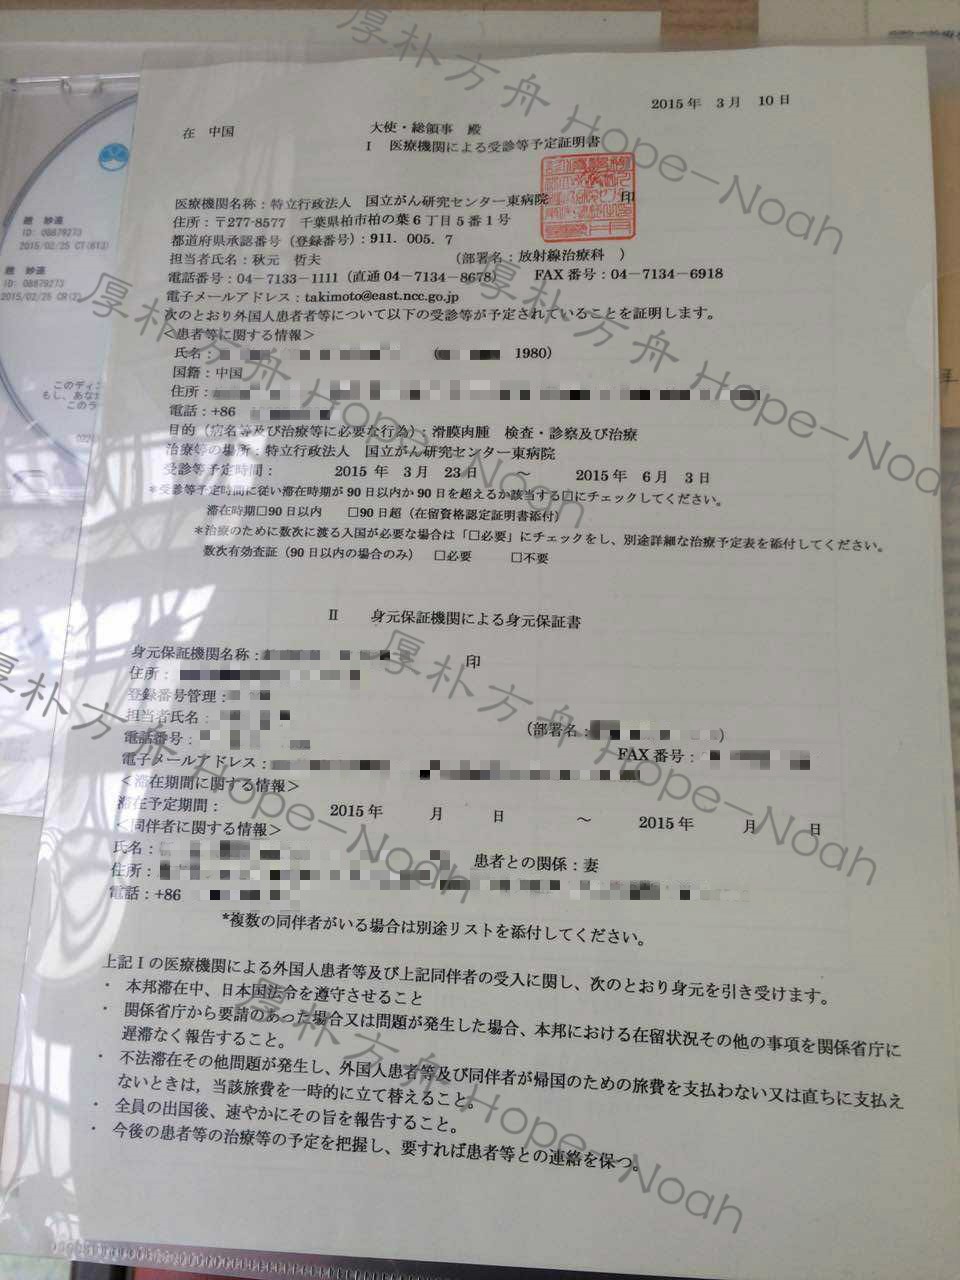 2015年 3月 10日
在 中国 大使・総領事 殿
Ⅰ 医療機関による受診等予定証明書
医療機関名称：特立行政法人 国立がん研究センター東病院 印
住所：〒277-8577 千葉県柏市柏の葉6丁目5番1号
都道府県承認番号（登録番号）：911．005．7
担当者氏名：秋元 哲夫 （部署名：放射線治療科 ）
電話番号：04-7133-1111（直通04-7134-8678） FAX番号：04-7134-6918
電子メールアドレス：takimoto@east.ncc.go.jp
次のとおり外国人患者者等について以下の受診等が予定されていることを証明します。
＜患者等に関する情報＞
氏名： （ 1980）
国籍：中国
住所：
電話：+86
目的（病名等及び治療等に必要な行為）：滑膜肉腫 検査・診察及び治療
治療等の場所：特立行政法人 国立がん研究センター東病院
受診等予定時間： 2015年 3月 23日 ～ 2015年 6月 3日
＊受診等予定時間に従い滞在時期が90日以内か90日を超えるか該当する□にチェックしてください。
滞在時期□90日以内 □90日超（在留資格認定証明書添付）
＊治療のために数次に渡る入国が必要な場合は「□必要」にチェックをし、別途詳細な治療予定表を添付してください。
数次有効査証（90日以内の場合のみ） □必要 □不要
Ⅱ 身元保証機関による身元保証書
身元保証機関名称： 印
住所：
登録番号管理：
担当者氏名： （部署名： ）
電話番号： FAX番号：
電子メールアドレス：
＜滞在期間に関する情報＞
滞在予定期間： 2015年 月 日 ～ 2015年 月 日
＜同伴者に関する情報＞
氏名： 患者との関係：妻
住所：
電話：+86
*複数の同伴者がいる場合は別途リストを添付してください。
上記Ⅰの医療機関による外国人患者等及び上記同伴者の受入に関し、次のとおり身元を引き受けます。
・ 本邦滞在中、日本国法令を遵守させること
・ 関係省庁から要請のあった場合又は問題が発生した場合、本邦における在留状況その他の事項を関係省庁に
遅滞なく報告すること。
・ 不法滞在その他問題が発生し、外国人患者等及び同伴者が帰国のための旅費を支払わない又は直ちに支払え
ないときは，当該旅費を一時的に立て替えること。
・ 全員の出国後、速やかにその旨を報告すること。
・ 今後の患者等の治療等の予定を把握し、要すれば患者等との連絡を保つ。
趙 妙遠
ID: 08879273
2015/02/25 CT(613)
趙 妙遠
ID: 08879273
2015/02/25 CR(2)
このディ
もし、あな
このラ
厚朴方舟 Hope-Noah
厚朴方舟 Hope-Noah
厚朴方舟 Hope-Noah
厚朴方舟 Hope-Noah
厚朴方舟 Hope-Noah
厚朴方舟 Hope-Noah